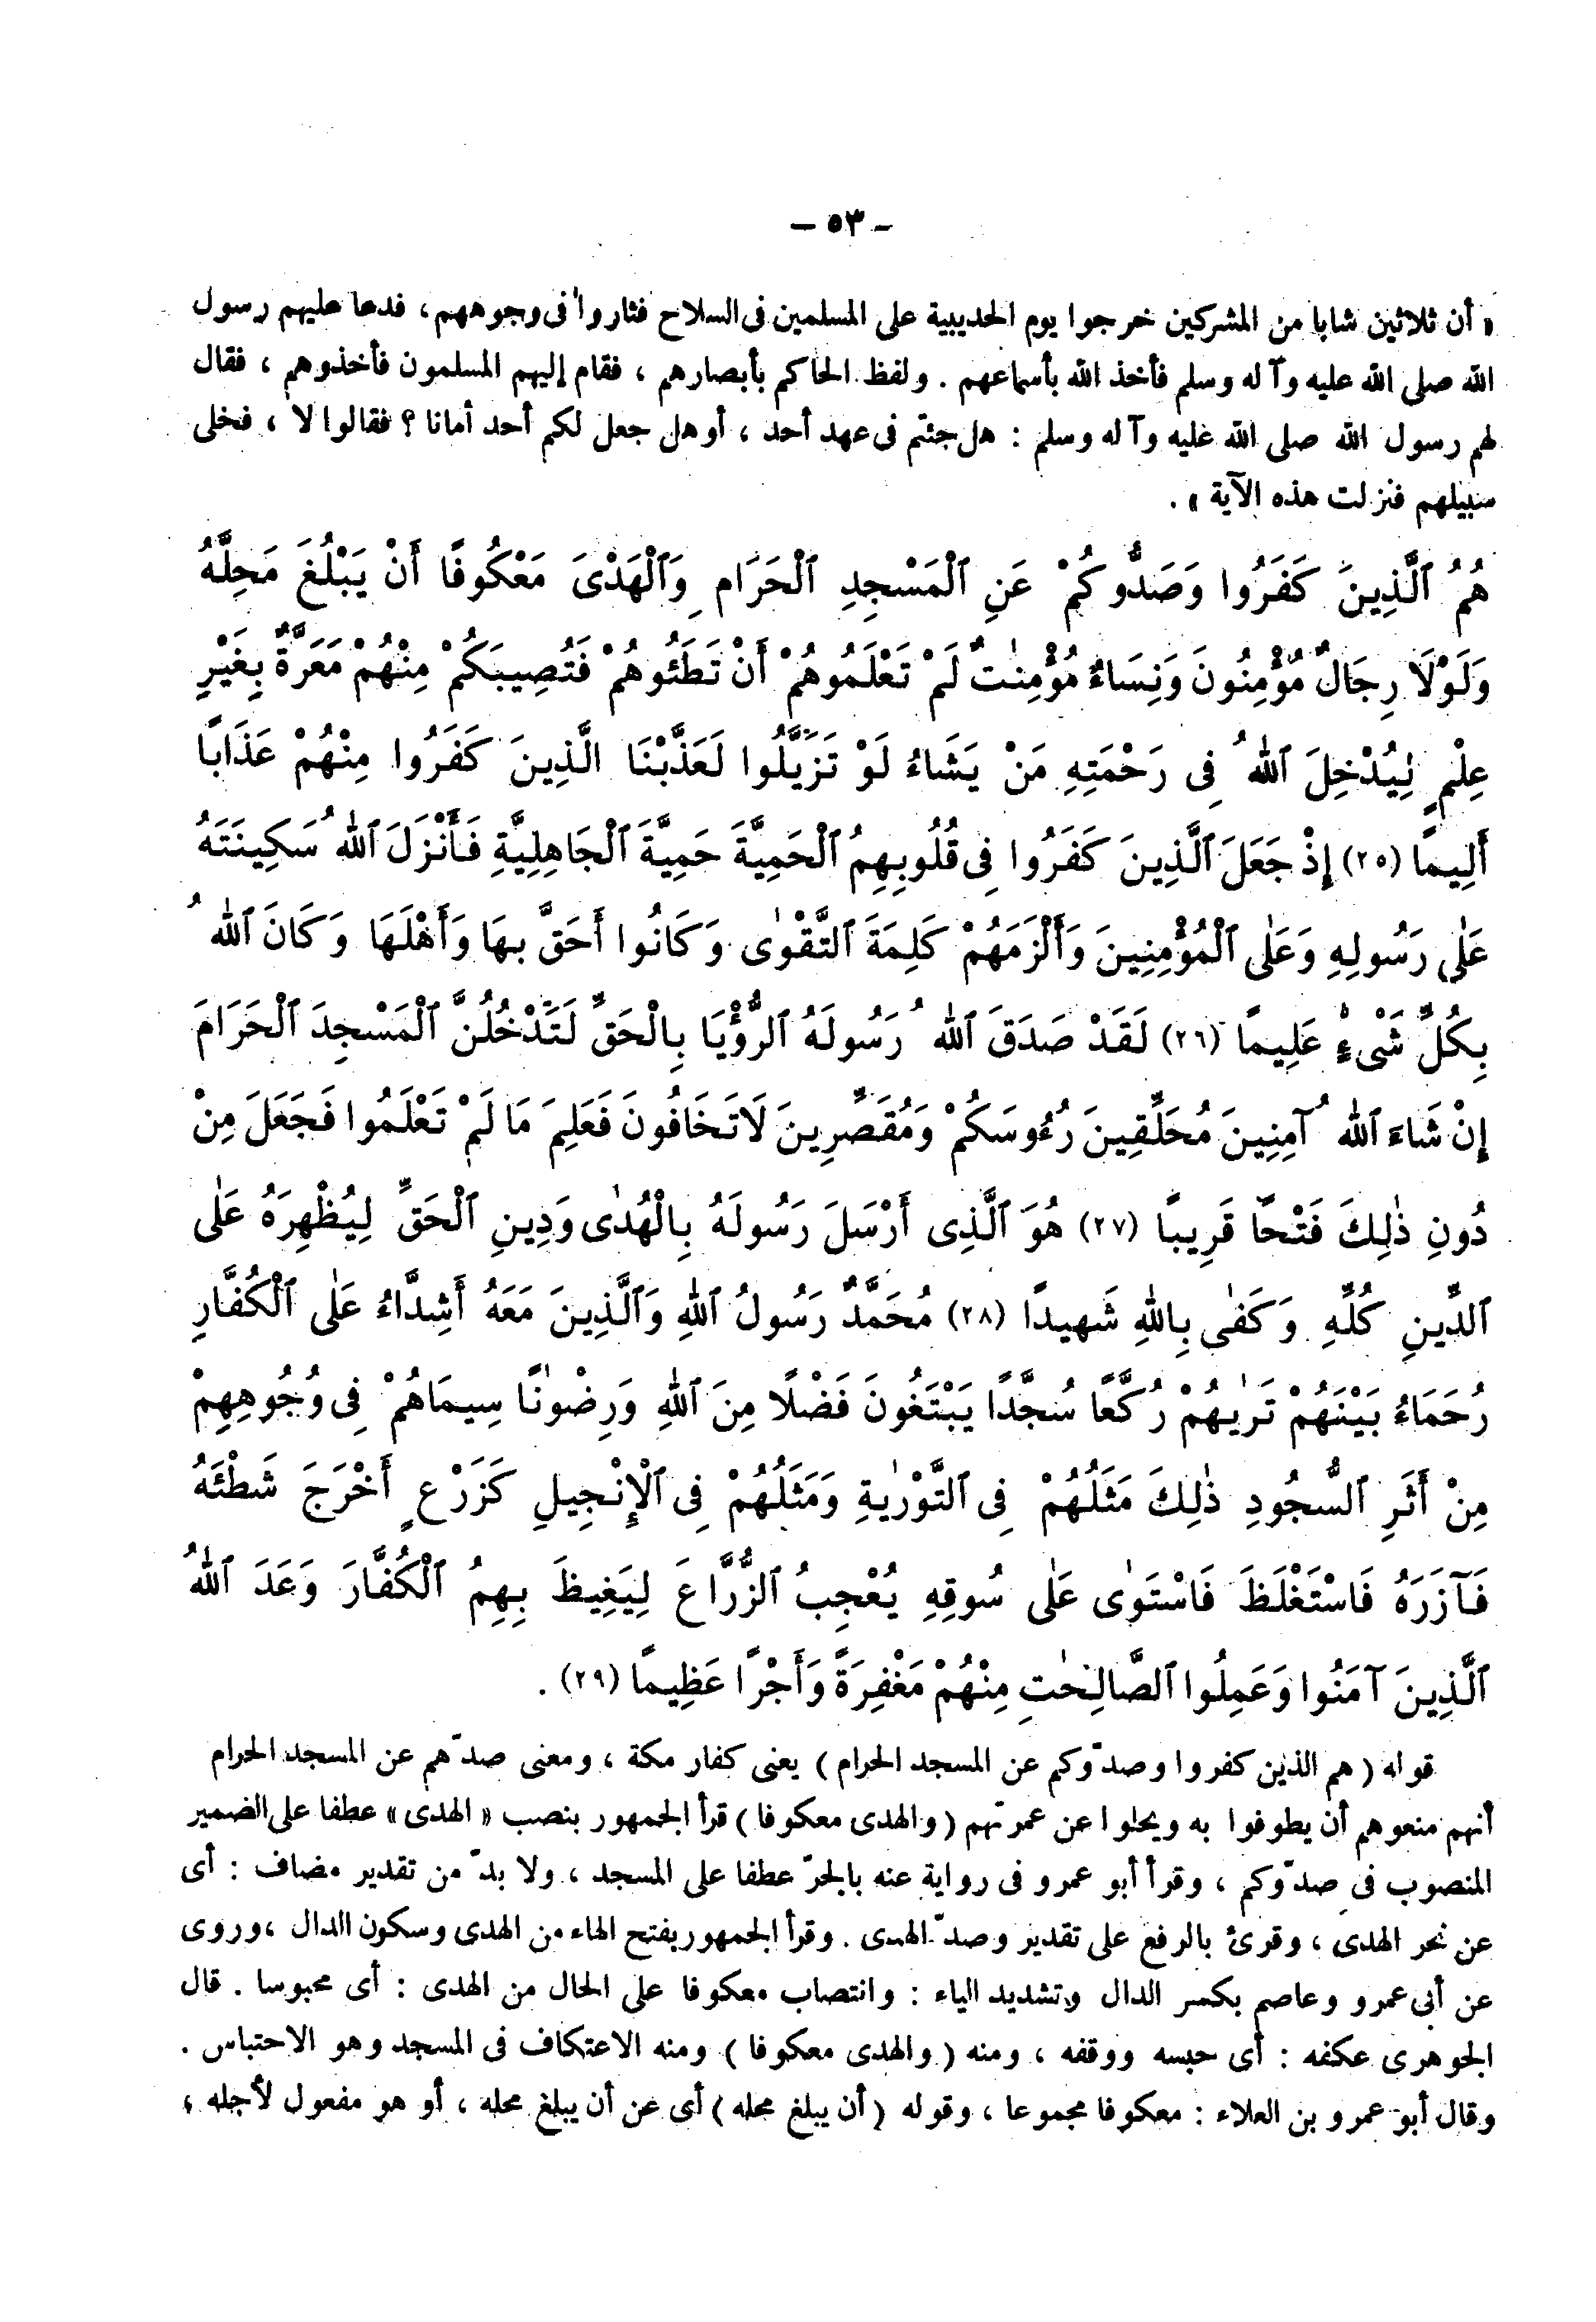 ـ ٥٣ ـ
« أن ثلاثين شابا من المشركين خرجوا يوم الحديبية على المسلمين فى السلاح فثاروا فى وجوههم ، فدعا عليهم رسول
الله صلى الله عليه وآله وسلم فأخذ الله بأسماعهم . ولفظ الحاكم بأبصارهم ، فقام إليهم المسلمون فأخذوهم ، فقال
لهم رسول الله صلى الله عليه وآله وسلم : هل جئتم فى عهد أحد ، أو هل جعل لكم أحد أمانا ؟ فقالوا لا ، فخلى
سبيلهم فنزلت هذه الآية » .
هُمُ ٱلَّذِينَ كَفَرُوا وَصَدُّوكُمْ عَنِ ٱلْمَسْجِدِ ٱلْحَرَامِ وَٱلْهَدْىَ مَعْكُوفًا أَنْ يَبْلُغَ مَحِلَّهُ
وَلَوْلَا رِجَالٌ مُؤْمِنُونَ وَنِسَاءٌ مُؤْمِنٰتٌ لَمْ تَعْلَمُوهُمْ أَنْ تَطَئُوهُمْ فَتُصِيبَكُمْ مِنْهُمْ مَعَرَّةٌ بِغَيْرِ
عِلْمٍ لِيُدْخِلَ ٱللهُ فِى رَحْمَتِهِ مَنْ يَشَاءُ لَوْ تَزَيَّلُوا لَعَذَّبْنَا الَّذِينَ كَفَرُوا مِنْهُمْ عَذَابًا
أَلِيمًا (٢٥) إِذْ جَعَلَ ٱلَّذِينَ كَفَرُوا فِى قُلُوبِهِمُ ٱلْحَمِيَّةَ حَمِيَّةَ ٱلْجَاهِلِيَّةِ فَأَنْزَلَ ٱللهُ سَكِينَتَهُ
عَلٰى رَسُولِهِ وَعَلٰى ٱلْمُؤْمِنِينَ وَأَلْزَمَهُمْ كَلِمَةَ ٱلتَّقْوٰى وَكَانُوا أَحَقَّ بِهَا وَأَهْلَهَا وَكَانَ ٱللهُ
بِكُلِّ شَىْءٍ عَلِيمًا (٢٦) لَقَدْ صَدَقَ ٱللهُ رَسُولَهُ ٱلرُّؤْيَا بِالْحَقِّ لَتَدْخُلُنَّ ٱلْمَسْجِدَ ٱلْحَرَامَ
إِنْ شَاءَ ٱللهُ آمِنِينَ مُحَلِّقِينَ رُءُوسَكُمْ وَمُقَصِّرِينَ لَاتَخَافُونَ فَعَلِمَ مَا لَمْ تَعْلَمُوا فَجَعَلَ مِنْ
دُونِ ذٰلِكَ فَتْحًا قَرِيبًا (٢٧) هُوَ ٱلَّذِى أَرْسَلَ رَسُولَهُ بِالْهُدٰى وَدِينِ ٱلْحَقِّ لِيُظْهِرَهُ عَلٰى
ٱلدِّينِ كُلِّهِ وَكَفٰى بِاللهِ شَهِيدًا (٢٨) مُحَمَّدٌ رَسُولُ ٱللهِ وَٱلَّذِينَ مَعَهُ أَشِدَّاءُ عَلٰى ٱلْكُفَّارِ
رُحَمَاءُ بَيْنَهُمْ تَرٰيهُمْ رُكَّعًا سُجَّدًا يَبْتَغُونَ فَضْلًا مِنَ ٱللهِ وَرِضْوٰنًا سِيمَاهُمْ فِى وُجُوهِهِمْ
مِنْ أَثَرِ ٱلسُّجُودِ ذٰلِكَ مَثَلُهُمْ فِى ٱلتَّوْرٰيةِ وَمَثَلُهُمْ فِى ٱلْإِنْجِيلِ كَزَرْعٍ أَخْرَجَ شَطْئَهُ
فَآزَرَهُ فَاسْتَغْلَظَ فَاسْتَوٰى عَلٰى سُوقِهِ يُعْجِبُ ٱلزُّرَّاعَ لِيَغِيظَ بِهِمُ ٱلْكُفَّارَ وَعَدَ ٱللهُ
ٱلَّذِينَ آمَنُوا وَعَمِلُوا ٱلصَّالِحٰتِ مِنْهُمْ مَغْفِرَةً وَأَجْرًا عَظِيمًا (٢٩) .
قوله ( هم الذين كفروا وصدّوكم عن المسجد الحرام ) يعنى كفار مكة ، ومعنى صدّهم عن المسجد الحرام
أنهم منعوهم أن يطوفوا به ويحلوا عن عمرتهم ( والهدى معكوفا ) قرأ الجمهور بنصب « الهدى » عطفا على الضمير
المنصوب فى صدّوكم ، وقرأ أبو عمرو فى رواية عنه بالجرّ عطفا على المسجد ، ولا بدّ من تقدير مضاف : أى
عن نحر الهدى ، وقرئ بالرفع على تقدير وصدّ الهدى . وقرأ الجمهور بفتح الهاء من الهدى وسكون الدال ، وروى
عن أبى عمرو وعاصم بكسر الدال وتشديد الياء : وانتصاب معكوفا على الحال من الهدى : أى محبوسا . قال
الجوهرى عكفه : أى حبسه ووقفه ، ومنه ( والهدى معكوفا ) ومنه الاعتكاف فى المسجد وهو الاحتباس .
وقال أبو عمرو بن العلاء : معكوفا مجموعا ، وقوله ( أن يبلغ محله ) أى عن أن يبلغ محله ، أو هو مفعول لأجله ،